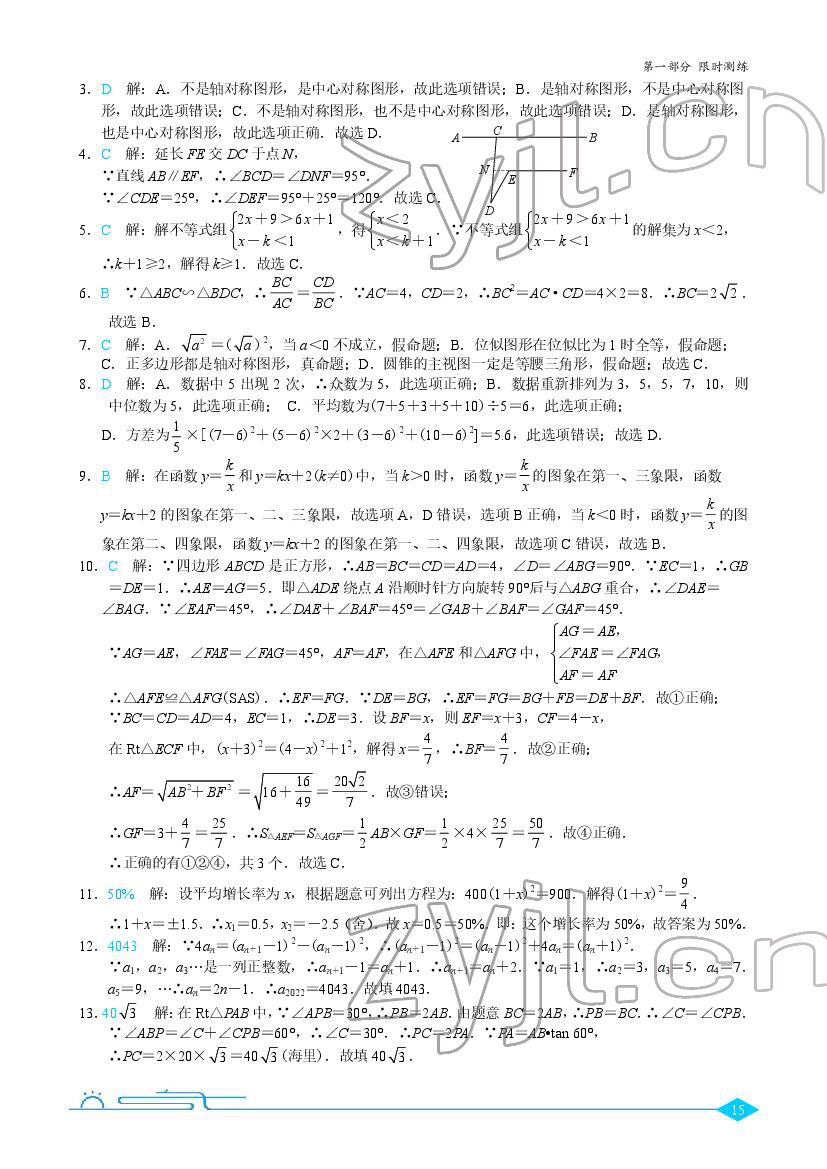 第一部分 限时测练
3. D 解：A. 不是轴对称图形，是中心对称图形，故此选项错误；B. 是轴对称图形，不是中心对称图
形，故此选项错误；C. 不是轴对称图形，也不是中心对称图形，故此选项错误；D. 是轴对称图形，
也是中心对称图形，故此选项正确. 故选 D.
A C B
N E F
D
4. C 解：延长 FE 交 DC 于点 N，
∵直线 AB∥EF，∴∠BCD=∠DNF=95°.
∵∠CDE=25°，∴∠DEF=95°+25°=120°. 故选 C.
5. C 解：解不等式组{2x+9>6x+1, x-k<1}，得{x<2, x<k+1}. ∵不等式组{2x+9>6x+1, x-k<1}的解集为 x<2，
∴k+1≥2，解得 k≥1. 故选 C.
6. B ∵△ABC∽△BDC，∴BC/AC=CD/BC. ∵AC=4，CD=2，∴BC²=AC·CD=4×2=8. ∴BC=2√2.
故选 B.
7. C 解：A. √a²=(√a)²，当 a<0 不成立，假命题；B. 位似图形在位似比为 1 时全等，假命题；
C. 正多边形都是轴对称图形，真命题；D. 圆锥的主视图一定是等腰三角形，假命题；故选 C.
8. D 解：A. 数据中 5 出现 2 次，∴众数为 5，此选项正确；B. 数据重新排列为 3，5，5，7，10，则
中位数为 5，此选项正确； C. 平均数为(7+5+3+5+10)÷5=6，此选项正确；
D. 方差为 1/5×[(7-6)²+(5-6)²×2+(3-6)²+(10-6)²]=5.6，此选项错误；故选 D.
9. B 解：在函数 y=k/x 和 y=kx+2(k≠0)中，当 k>0 时，函数 y=k/x 的图象在第一、三象限，函数
y=kx+2 的图象在第一、二、三象限，故选项 A，D 错误，选项 B 正确，当 k<0 时，函数 y=k/x 的图
象在第二、四象限，函数 y=kx+2 的图象在第一、二、四象限，故选项 C 错误，故选 B.
10. C 解：∵四边形 ABCD 是正方形，∴AB=BC=CD=AD=4，∠D=∠ABG=90°. ∵EC=1，∴GB
=DE=1. ∴AE=AG=5. 即△ADE 绕点 A 沿顺时针方向旋转 90°后与△ABG 重合，∴∠DAE=
∠BAG. ∵∠EAF=45°，∴∠DAE+∠BAF=45°=∠GAB+∠BAF=∠GAF=45°.
∵AG=AE，∠FAE=∠FAG=45°，AF=AF，在△AFE 和△AFG 中，{AG=AE, ∠FAE=∠FAG, AF=AF
∴△AFE≌△AFG(SAS). ∴EF=FG. ∵DE=BG，∴EF=FG=BG+FB=DE+BF. 故①正确；
∵BC=CD=AD=4，EC=1，∴DE=3. 设 BF=x，则 EF=x+3，CF=4-x，
在 Rt△ECF 中，(x+3)²=(4-x)²+1²，解得 x=4/7，∴BF=4/7. 故②正确；
∴AF=√(AB²+BF²)=√(16+16/49)=20√2/7. 故③错误；
∴GF=3+4/7=25/7. ∴S△AEF=S△AGF=1/2 AB×GF=1/2×4×25/7=50/7. 故④正确.
∴正确的有①②④，共 3 个. 故选 C.
11. 50% 解：设平均增长率为 x，根据题意可列出方程为：400(1+x)²=900. 解得(1+x)²=9/4.
∴1+x=±1.5. ∴x₁=0.5，x₂=-2.5（舍）. 故 x=0.5=50%. 即：这个增长率为 50%，故答案为 50%.
12. 4043 解：∵4aₙ=(aₙ₊₁-1)²-(aₙ-1)²，∴(aₙ₊₁-1)²=(aₙ-1)²+4aₙ=(aₙ+1)².
∵a₁，a₂，a₃…是一列正整数，∴aₙ₊₁-1=aₙ+1. ∴aₙ₊₁=aₙ+2. ∵a₁=1，∴a₂=3，a₃=5，a₄=7.
a₅=9，…∴aₙ=2n-1. ∴a₂₀₂₂=4043. 故填 4043.
13. 40√3 解：在 Rt△PAB 中，∵∠APB=30°，∴PB=2AB. 由题意 BC=2AB，∴PB=BC. ∴∠C=∠CPB.
∵∠ABP=∠C+∠CPB=60°，∴∠C=30°. ∴PC=2PA. ∵PA=AB•tan 60°，
∴PC=2×20×√3=40√3(海里). 故填 40√3.
15
zyjl.cn
zyjl.cn